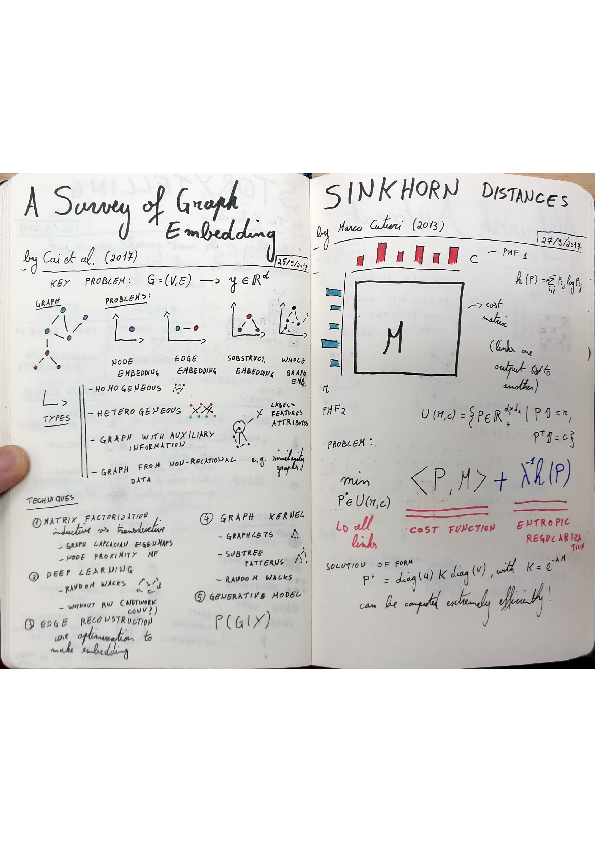 A Survey of Graph
Embedding
by Cai et al. (2017)
25/9/2017
KEY PROBLEM: G=(V,E) → y ∈ ℝᵈ
GRAPH
PROBLEMS:
NODE EMBEDDING
EDGE EMBEDDING
SUBSTRUCT. EMBEDDING
WHOLE GRAPH EMB.
TYPES
- HOMOGENEOUS
- HETEROGENEOUS
LABELS
FEATURES
ATTRIBUTES
- GRAPH WITH AUXILIARY
INFORMATION
- GRAPH FROM NON-RELATIONAL
DATA
e.g. similarity
graphs!
TECHNIQUES
① MATRIX FACTORIZATION
inductive vs transductive
- GRAPH LAPLACIAN EIGENMAPS
- NODE PROXIMITY MF
② DEEP LEARNING
- RANDOM WALKS
- WITHOUT RW (NETWORK
CONV?)
③ EDGE RECONSTRUCTION
use optimisation to
make embedding
④ GRAPH KERNEL
- GRAPHLETS
- SUBTREE
PATTERNS
- RANDOM WALKS
⑤ GENERATIVE MODEL
P(G|Y)
SINKHORN DISTANCES
by Marco Cuturi (2013)
27/9/2017
C - PMF 1
→ cost
matrix
M
output
another)
r
PMF2
U(r,c) = {P∈ℝ₊ᵈˣᵈ | P𝟙=r,
Pᵀ𝟙=c}
PROBLEM:
min
P∈U(r,c)
<P, M> + λ⁻¹h(P)
Lo all
links
COST FUNCTION
ENTROPIC
REGULARIZA
TION
SOLUTION OF FORM
= diag(u) K diag(v), with K = e^-λM
can be computed extremely efficiently!